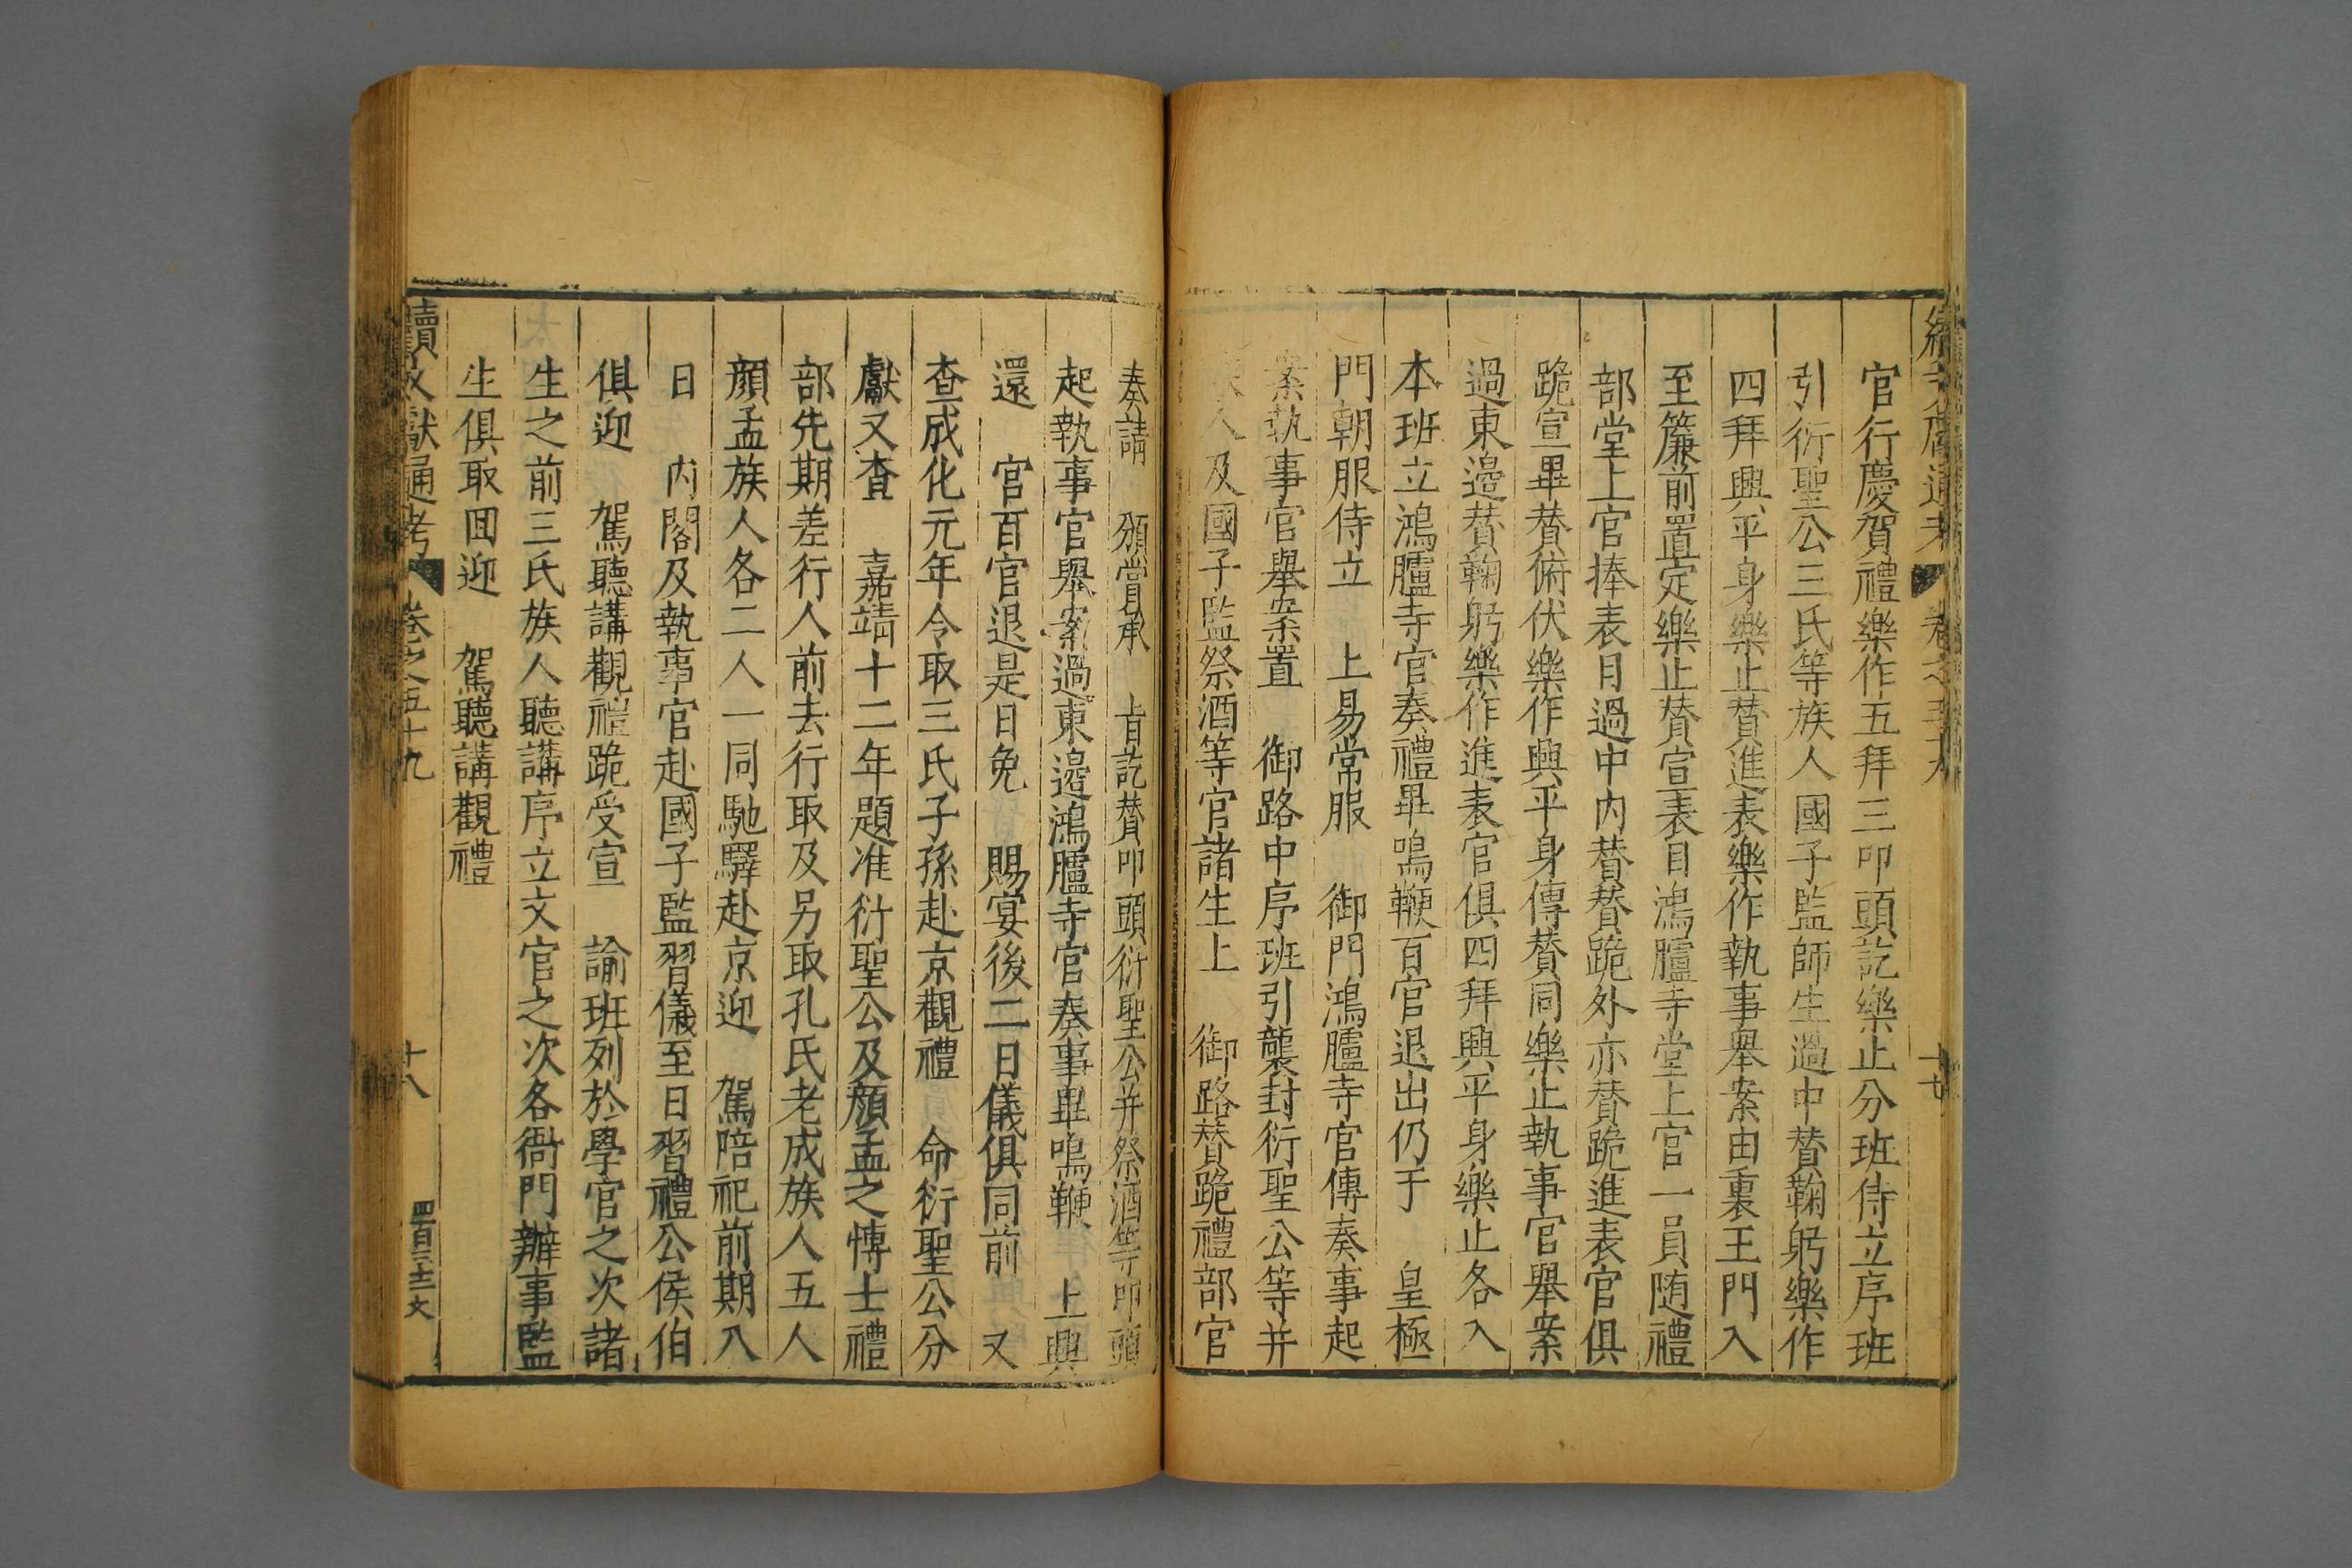 官行慶賀禮樂作五拜三叩頭訖樂止分班侍立序班
引衍聖公三氏等族人國子監師生過中贊鞠躬樂作
四拜興平身樂止贊進表樂作執事舉案由裏王門入
至簾前置定樂止贊宣表目鴻臚寺堂上官一員随禮
部堂上官捧表目過中内贊贊跪外亦贊跪進表官俱
跪宣畢贊俯伏樂作興平身傳贊同樂止執事官舉案
過東邉贊鞠躬樂作進表官俱四拜興平身樂止各入
本班立鴻臚寺官奏禮畢鳴鞭百官退出仍于　皇極
門朝服侍立　上易常服　御門鴻臚寺官傳奏事起
案執事官舉案置　御路中序班引襲封衍聖公等并
人及國子監祭酒等官諸生上　御路贊跪禮部官
奏請　頒賞承　旨訖贊叩頭衍聖公并祭酒等叩頭
起執事官舉案過東邉鴻臚寺官奏事畢鳴鞭　上興
還　宮百官退是日免　賜宴後二日儀俱同前　又
查成化元年令取三氏子孫赴京觀禮　命衍聖公分
獻又查　嘉靖十二年題准衍聖公及顔孟之博士禮
部先期差行人前去行取及另取孔氏老成族人五人
顔孟族人各二人一同馳驛赴京迎　駕陪祀前期入
日　内閣及執事官赴國子監習儀至日習禮公侯伯
俱迎　駕聽講觀禮跪受宣　諭班列於學官之次諸
生之前三氏族人聽講序立文官之次各衙門辦事監
生俱取囬迎　駕聽講觀禮
續文獻通考　卷之五十九　十八　四百三十二文